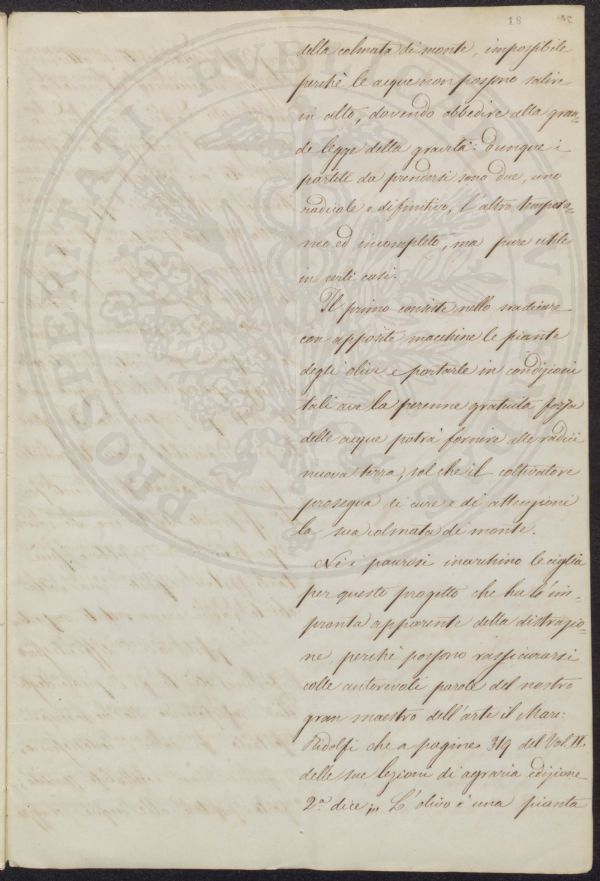 18
della colmata di monte, impossibile
perchè le acque non possono salire
in alto, dovendo obbedire alla gran-
de legge della gravità: dunque i
partiti da prendersi sono due, uno
radicale e difinitivo, l'altro tempora-
neo ed incompleto, ma pure utile
in certi casi.
Il primo consiste nello sradicare
con apposite macchine le piante
degli olivi e portarle in condizioni
tali ove la perenne gratuita forza
delle acque potrà fornire alle radici
nuova terra, sol che il coltivatore
prosegua di cure e di attenzioni
la sua colmata di monte.
Nè i paurosi inarchino le ciglia
per questo progetto che ha l'im-
pronta apparente della distruzio-
ne, perchè possono rassicurarsi
colle autorevoli parole del nostro
gran maestro dell'arte il Mar:
Ridolfi che a pagine 319 del Vol. II.
delle sue lezioni di agraria edizione
2.a dice „ L'olivo è una pianta
PROSPERITATI PUBLICAE